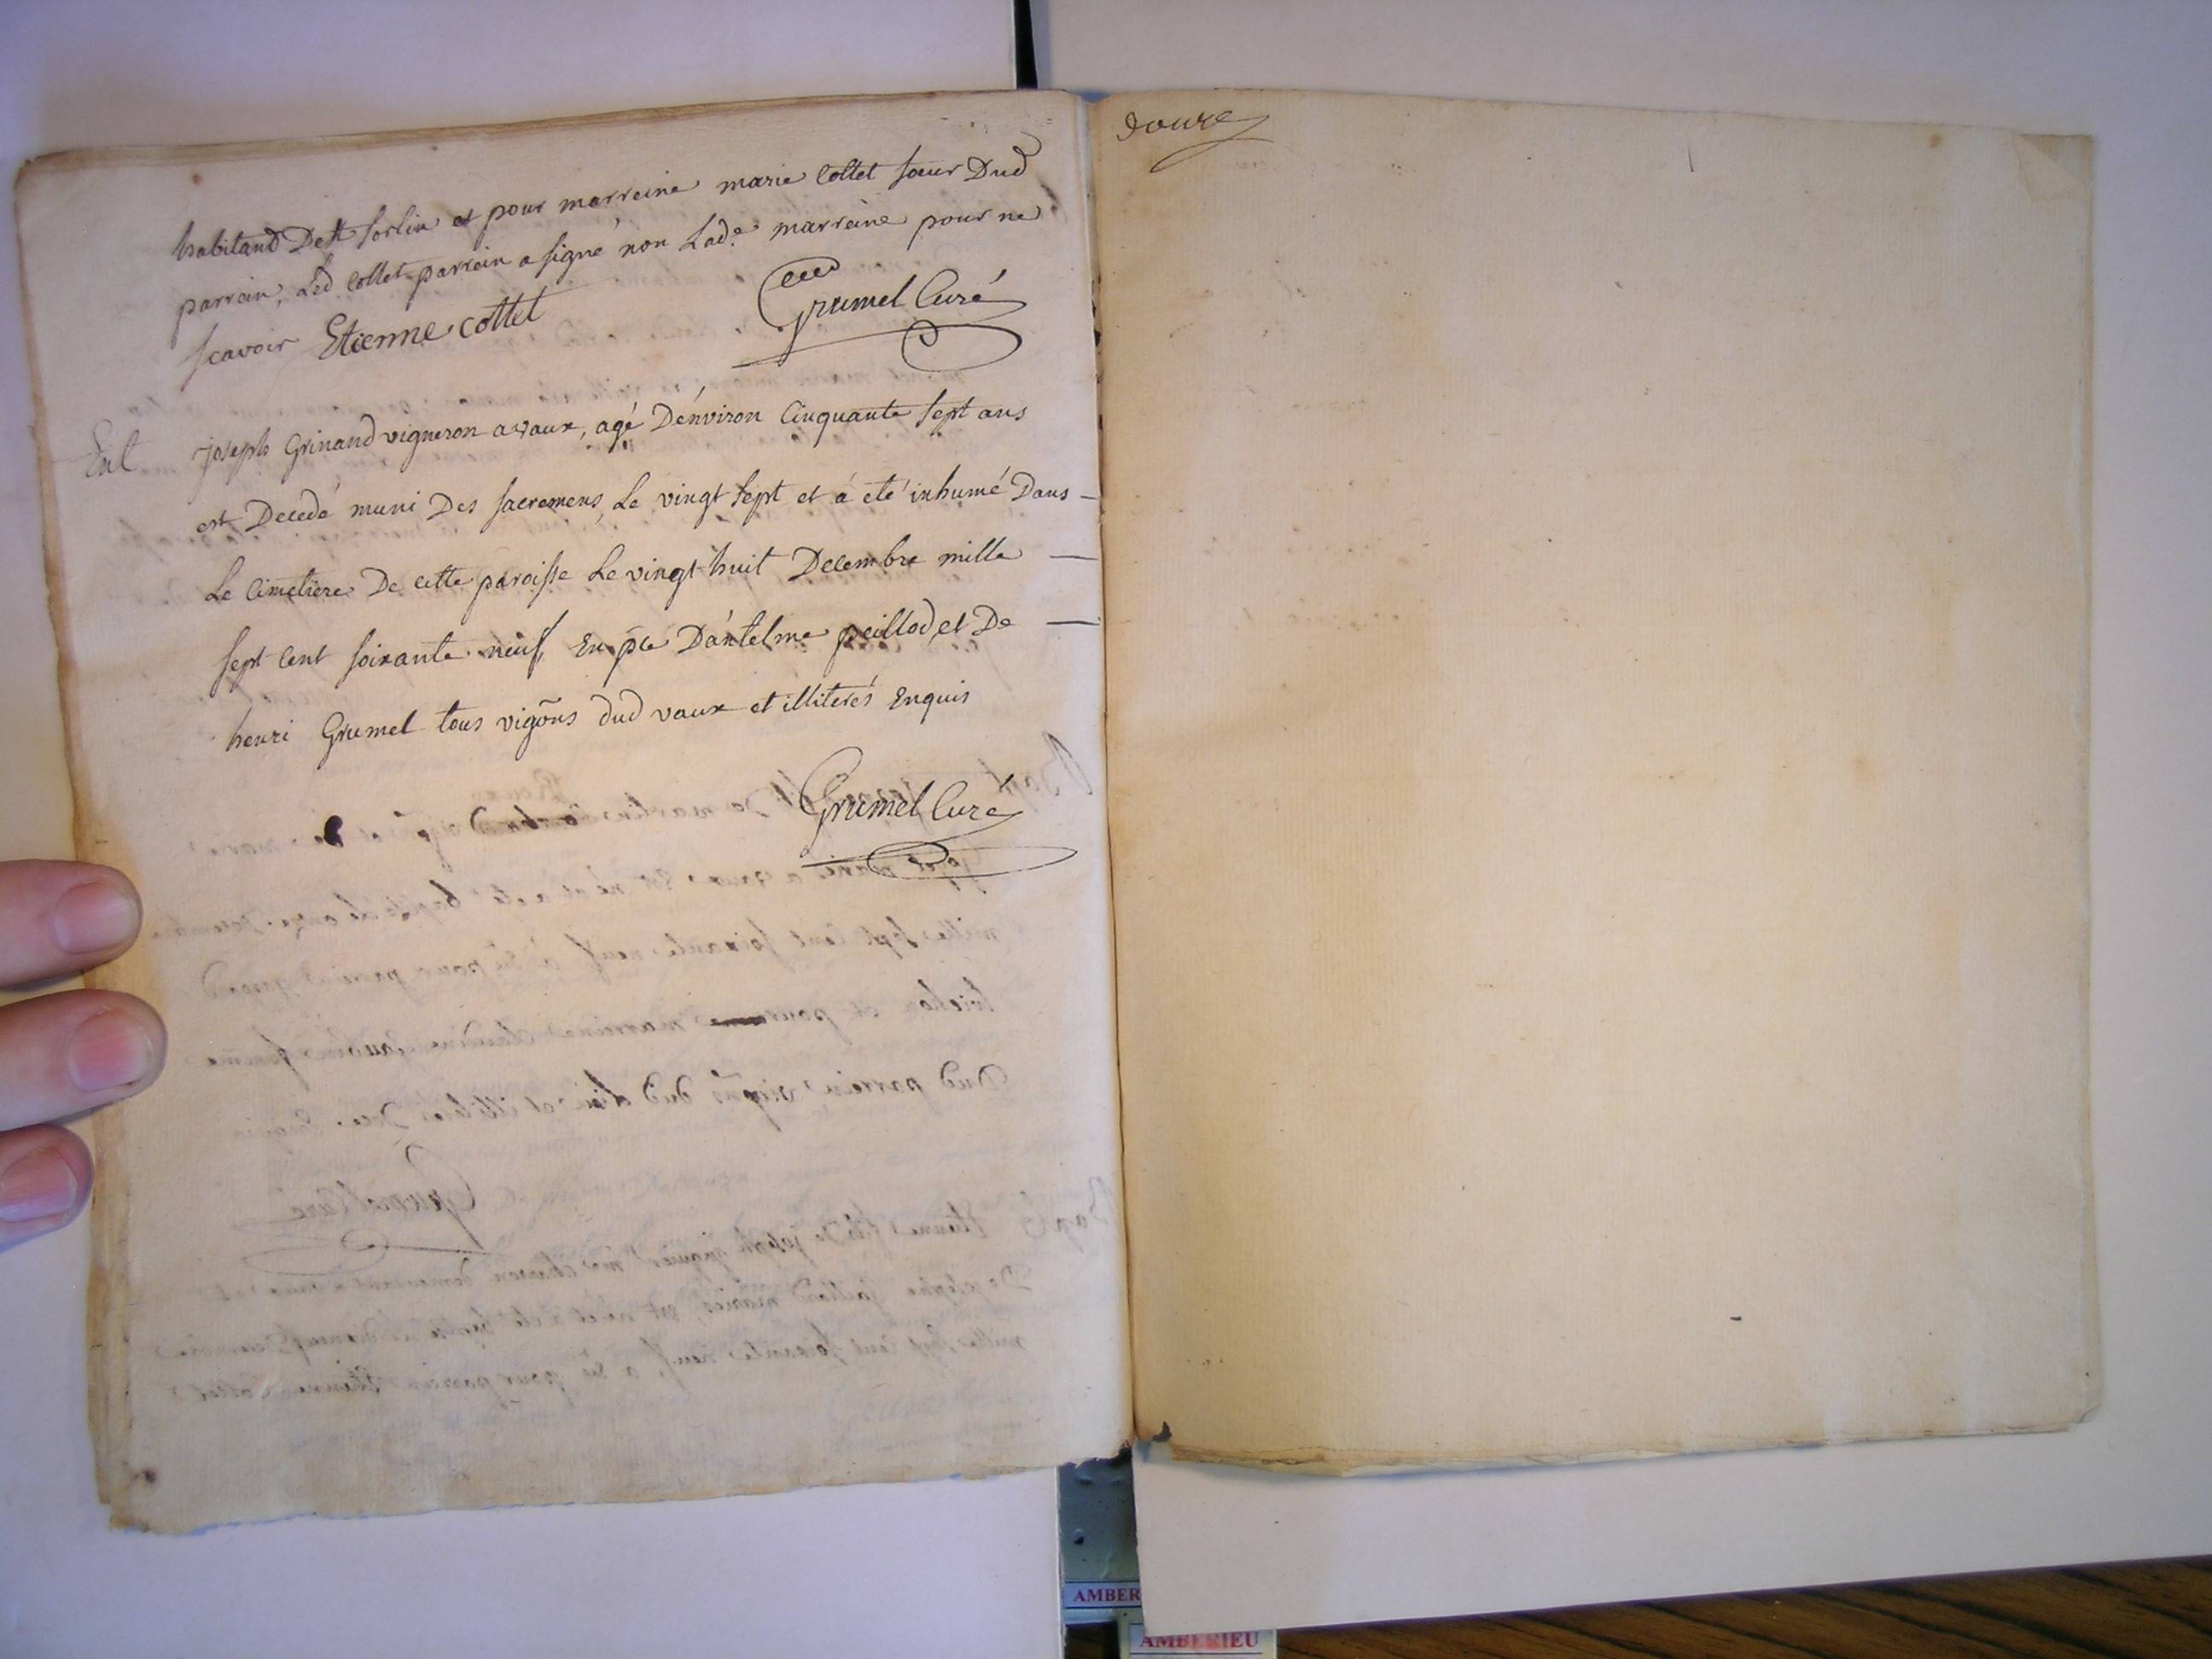 habitand De St sorlin et pour marreine marie Cottet soeur Dud
parrain, Led Cottet parrain a signé non Lade marreine pour ne
scavoir Etienne cottet Grumel Curé
Ent joseph Grinand vigneron a vaux, agé D'énviron Cinquante sept ans
est Decedé muni Des sacremens, Le vingt sept et á eté inhumé Dans
Le Cimetiere De cette paroisse Le vingt huit Decembre mille
sept cent soixante neuf, En pce D'antelme peillod et De
henri Grumel tous vigõns dud vaux et illiterés Enquis
Grumel Curé
douze
AMBER
AMBERIEU